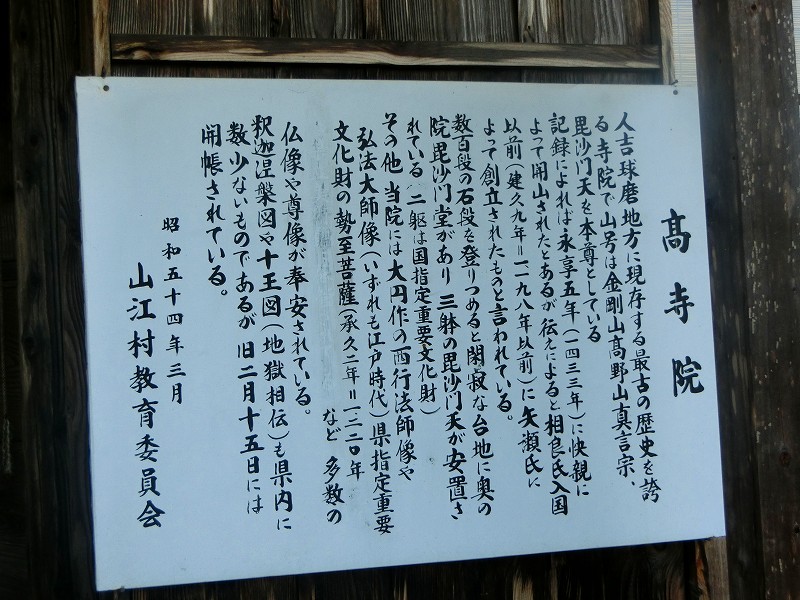 高寺院
人吉球磨地方に現存する最古の歴史を誇
る寺院で山号は金剛山高野山真言宗、
毘沙門天を本尊としている
記録によれば永享五年(一四三三年)に快親に
よって開山されたとあるが伝えによると相良氏入国
以前(建久九年=一一九八年以前)に矢瀬氏に
よって創立されたものと言われている。
数百段の石段を登りつめると閑寂な台地に奥の
院毘沙門堂があり三躰の毘沙門天が安置さ
れている(二躯は国指定重要文化財)
その他当院には大円作の西行法師像や
弘法大師像(いずれも江戸時代)県指定重要
文化財の勢至菩薩(承久二年=一二二〇年
など多数の
仏像や尊像が奉安されている。
釈迦涅槃図や十王図(地獄相伝)も県内に
数少ないものであるが旧二月十五日には
開帳されている。
昭和五十四年三月
山江村教育委員会